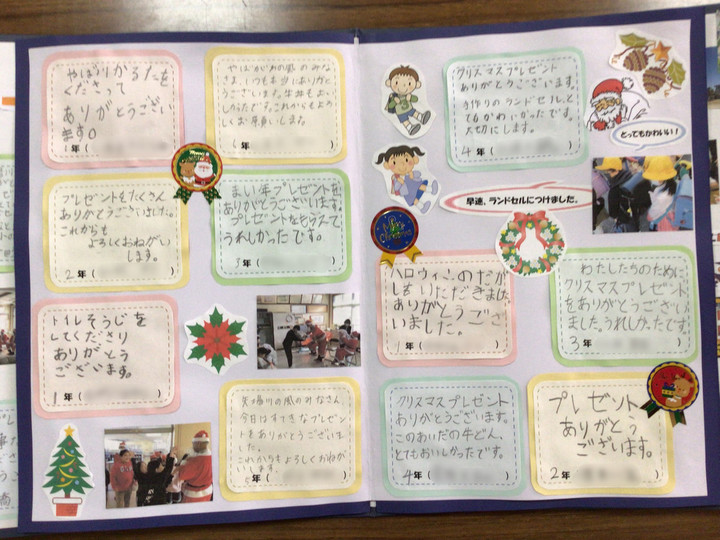 やば川かるたを
くださって
ありがとうござい
ます。
1年（　　）
やばがわの風のみな
さま、いつも本当にありがと
うございます。牛丼もおい
しかったです。これからもよろ
しくお願いします。
年（　　）
プレゼントをたくさん
ありがとうございました。
これからも
よろしくおねがい
します。
2年（　　）
まい年プレゼントを
ありがとうございます。
プレゼントをもらえて
うれしかったです。
3年（　　）
トイレそうじを
してくださり
ありがとう
ございます。
1年（　　）
矢場川の風のみなさん
今日はすてきなプレゼン
トをありがとうございまし
た。
これからもよろしくおねが
いします。
年（　　）
クリスマスプレゼント
ありがとうございます。
手作りのランドセル、と
てもかわいかったです。
大切にします。
4年（　　）
とってもかわいい！
早速、ランドセルにつけました。
ハロウィンのおか
しをいただきました。
ありがとうござ
いました。
1年（　　）
わたしたちのために
クリスマスプレゼント
をありがとうござい
ました。うれしかったです。
3年（　　）
クリスマスプレゼント
ありがとうございます。
このあいだの牛どん、
とてもおいしかったです。
4年（　　）
プレゼント
ありがとう
ございます。
2年（　　）